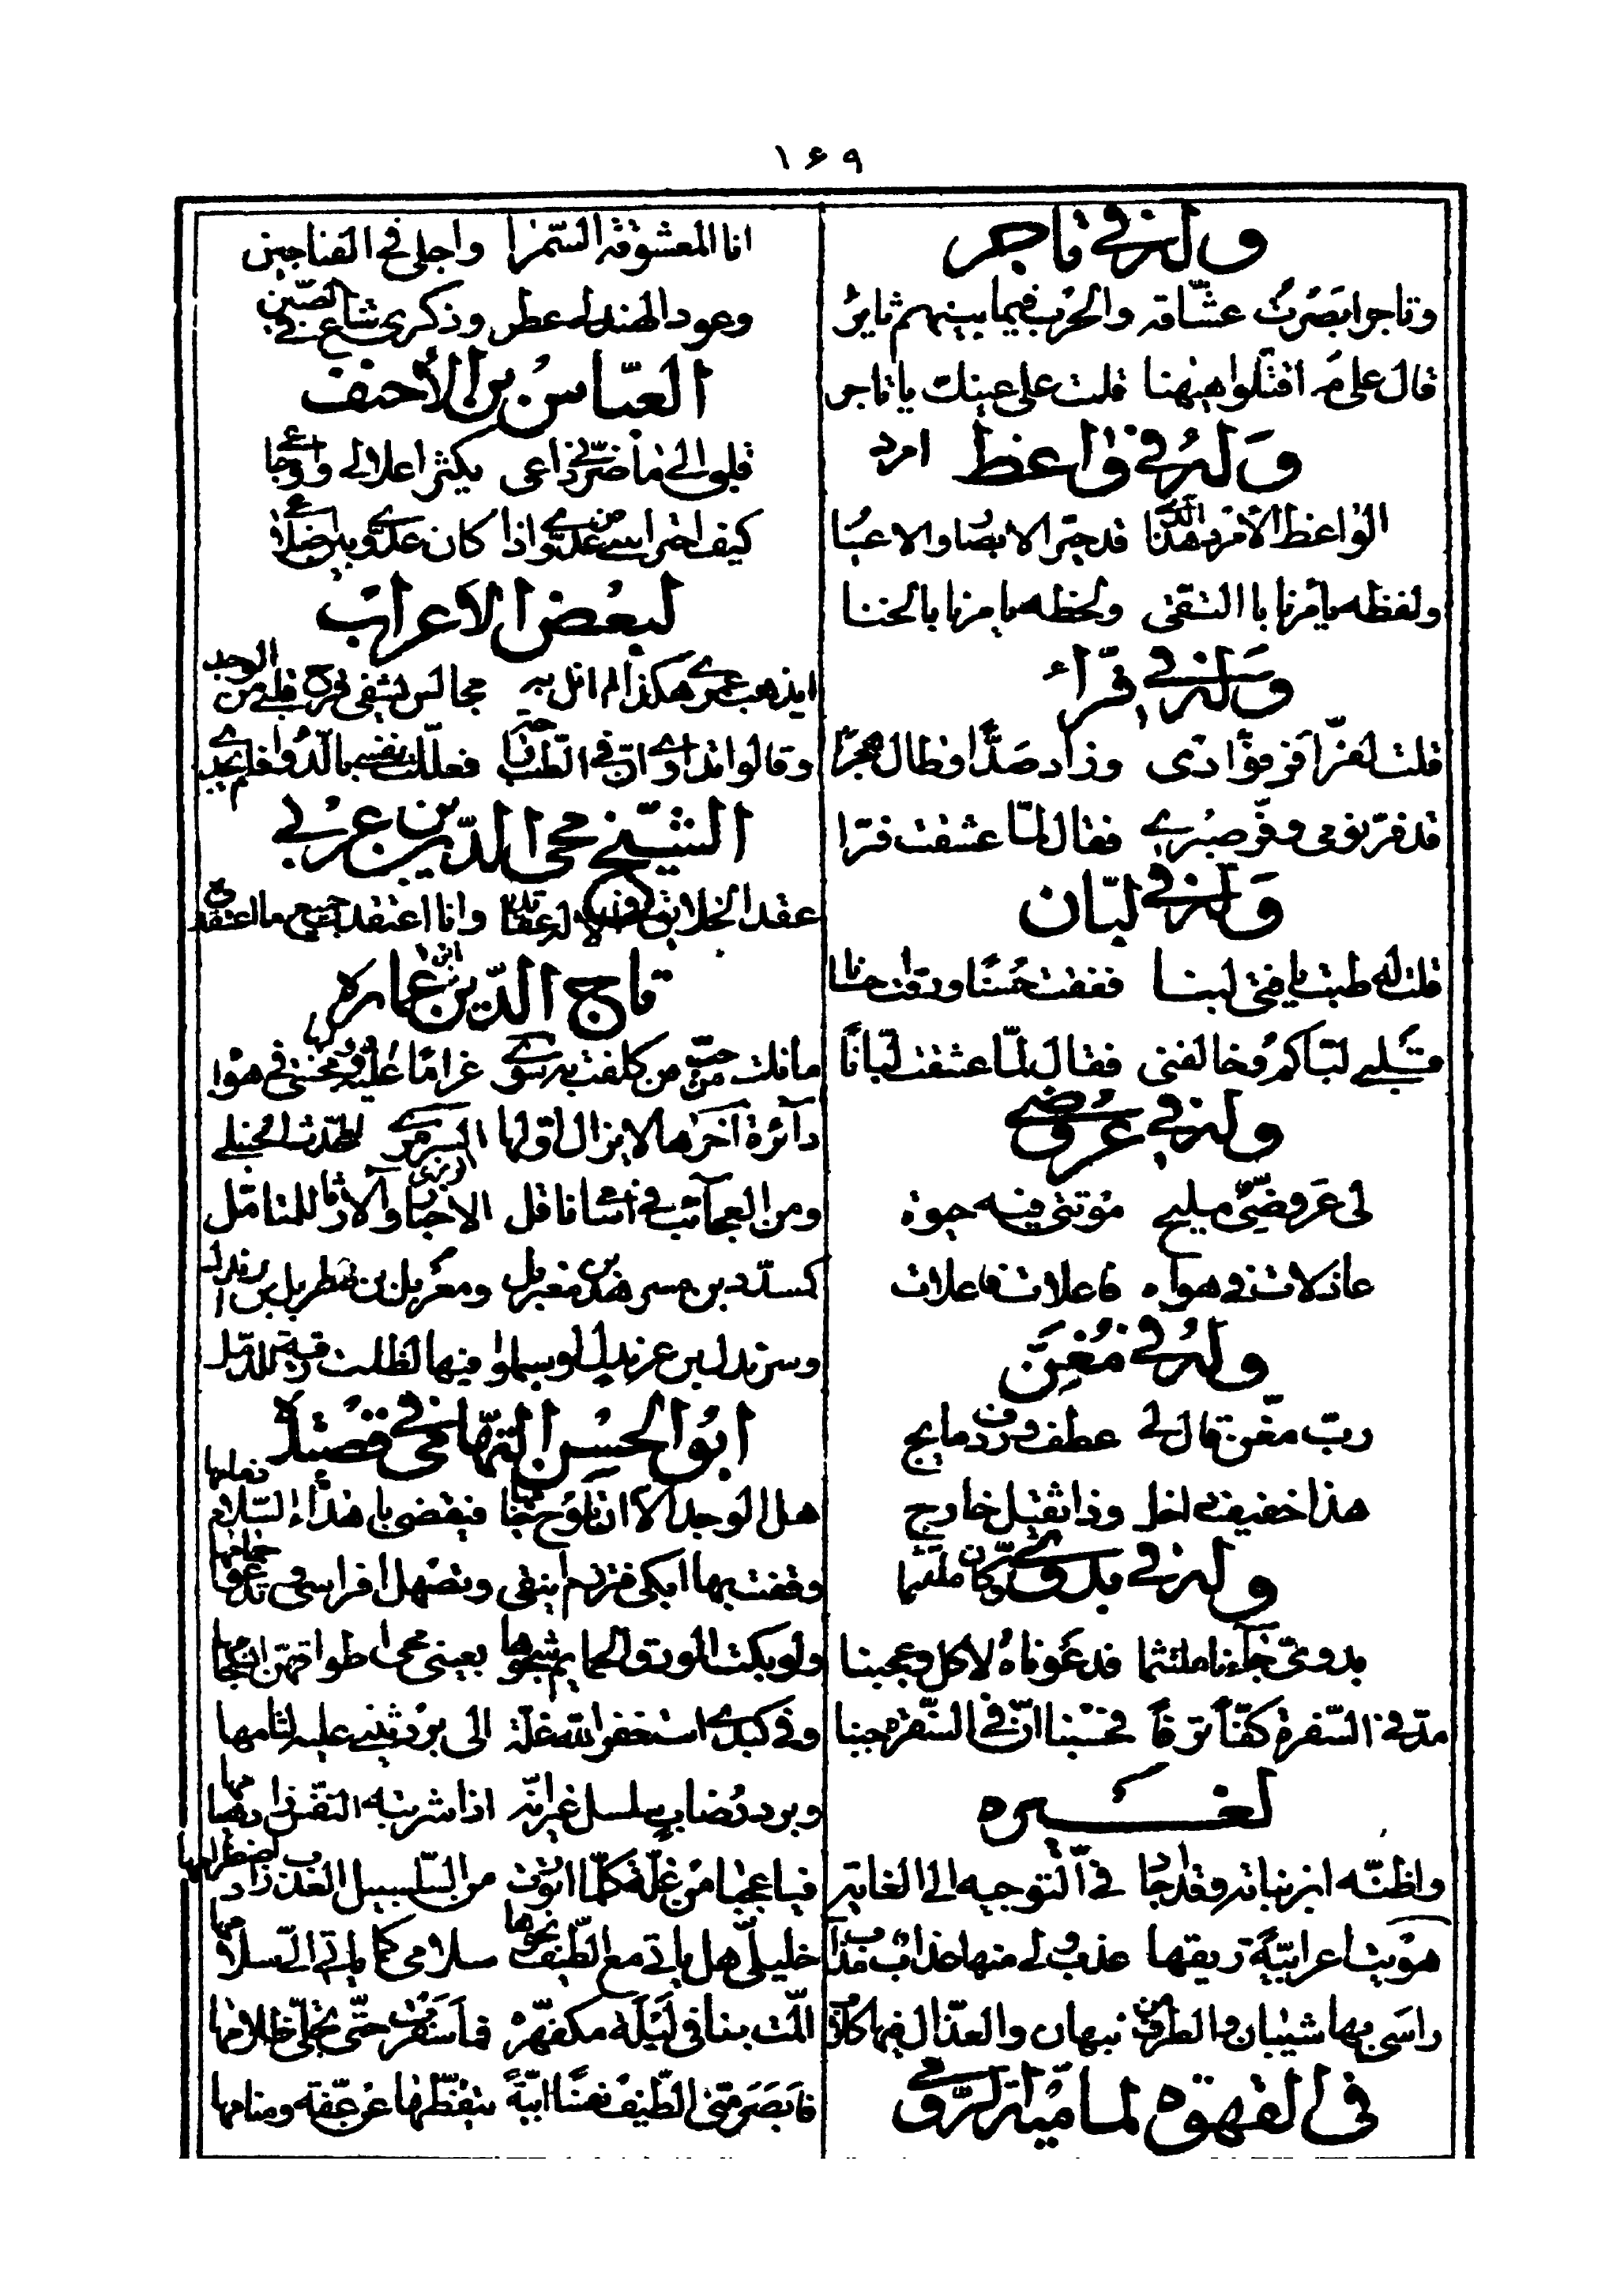 ١۶٩
وله في تاجر
وتاجر ابصرت عشّاقه والحرب فيما بينهم ثاير
قال على مه اقتتلوا هيهنا قلت على عينك يا تاجر
وله في واعظ امرد
الواعظ الامرد هذا الذي قد حير الابصار والاعينا
ولفظه يأمرنا باالتقى ولحظه يامرنا بالخنا
وله في قرّاء
قلت لفرّا فرى فؤادي وزاد صدّا وطال هجرا
قد فرّ نومي وفرّ صبري فقال لمّا عشقت فرّا
وله في لبّان
قلت له طبت يا فتى لبنا ففقت حسنا
قلبي لبّاكم وخالفني فقال لمّا عشقت لبّانا
وله في عروضي
لي عروضيّ مليح موتتي فيه حيوة
عاذلات في هواه فاعلات فاعلات
وله في مغن
ربّ مغن قال لي عطف وردف مايج
هذا خفيف داخل وذا ثقيل خارج
وله في بدوي وكان ملثما
بدوي جاءنا ملتثما فدعوناه لاكل وعجبنا
مدّ في السّفرة كفّا ترفا فحسبنا انّ في السّفرة جبنا
لغيره
واظنّه ابن نباته وقد اجاد في التوجيه الى الغاية
هويت اعرابيّة ريقها عذب ولي منها عذاب مذاب
راسي بها شيبان والطرف من نبهان والعذّال فيها كلاب
في القهوة لماميه الرومي
انا المعشوقة السّمرا واجلى في الفناجين
وعود الهند لي عطر وذكري شاع في الصّين
العبّاس بن الاحنف
قلبي الى ما ضرّني داعي يكثر اعلالي واوجاعي
كيف احتراسي من عدوّي اذا كان عدوّي بين اضلاعي
لبعض الاعراب
ايذهب عمري هكذا لم انل به مجالس تشفى قرح قلبي من الوجد
وقالوا تداوى ان في الطب راحة فعلّلت نفسي بالدّوا فلم يجد
الشيخ محي الدّين بن عربي
عقد الخلايق في الاله عقايدا وانا اعتقدت جميع ما اعتقدوه
تاج الدّين بن عماره
ما نلت من حب من كلفت به سوى غراما عليه
دآئرة آخرها لا يزال اولها
ومن العجآئب في اسامي ناقلي الاخبار والآثار للمتأمل
كمسدد بن مسرهد بن مغربل ومغربل بن مطربل بن ارندل
ابو الحسن التّهامي في قصيدة
هل الوجد الا ان تلوح خيامها فيقضي باهداء السّلام ذمامها
وقفت بها ابكي وترزم اينقي وتصهل افراسي وتدعو حمامها
ولو بكت الورق الحمايم شجوها بعيني محى اطواقهن انسجامها
وفي كبدي استغفر الله غلة الى برد ثني عليه لثامها
وبرد رضاب سلسل غير انّه اذا شربته النفس زاد هيامها
فيا عجبا من غلّة كلّما ارتوت من السّلسبيل العذب زاد اضطرامها
خليليّ هل يأتي مع الطّيف نحوها سلامي كما ياتي الّي سلامها
المّت بنا في ليلة مكفهرّة فما سفرت حتّى تجلّى ظلامها
فابصر منّي الطّيف نفسا ابيّة تيقّظها عن عفّة ومنامها